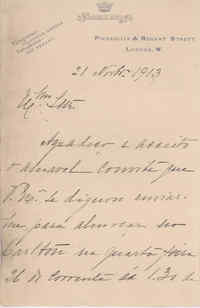 PICCADILLY & REGENT STREET
LONDON, W.
21 Novb. 1913
Exmo. Snr.
Agradeço e acceito
o amavel convite que
V. Exa. se dignou enviar-
me para almoçar no
Carlton na quarta feira
26 do corrente á 1.30 e